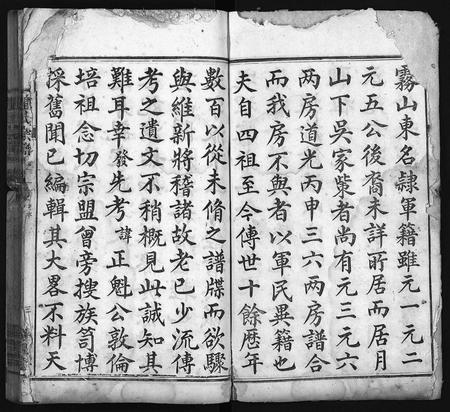 霧山東名隷軍籍雖元一元二
元五公後裔未詳所居而居月
山下吳家㘭者尚有元三元六
兩房道光丙申三六兩房譜合
而我房不與者以軍民異籍也
夫自四祖至今傳世十餘歷年
數百以從未脩之譜牒而欲驟
與維新將稽諸故老已少流傳
考之遺文不稍概見此誠知其
難耳幸發先考諱正魁公敦倫
培祖念切宗盟曾旁搜族笥博
採舊聞已編輯其大畧不料天